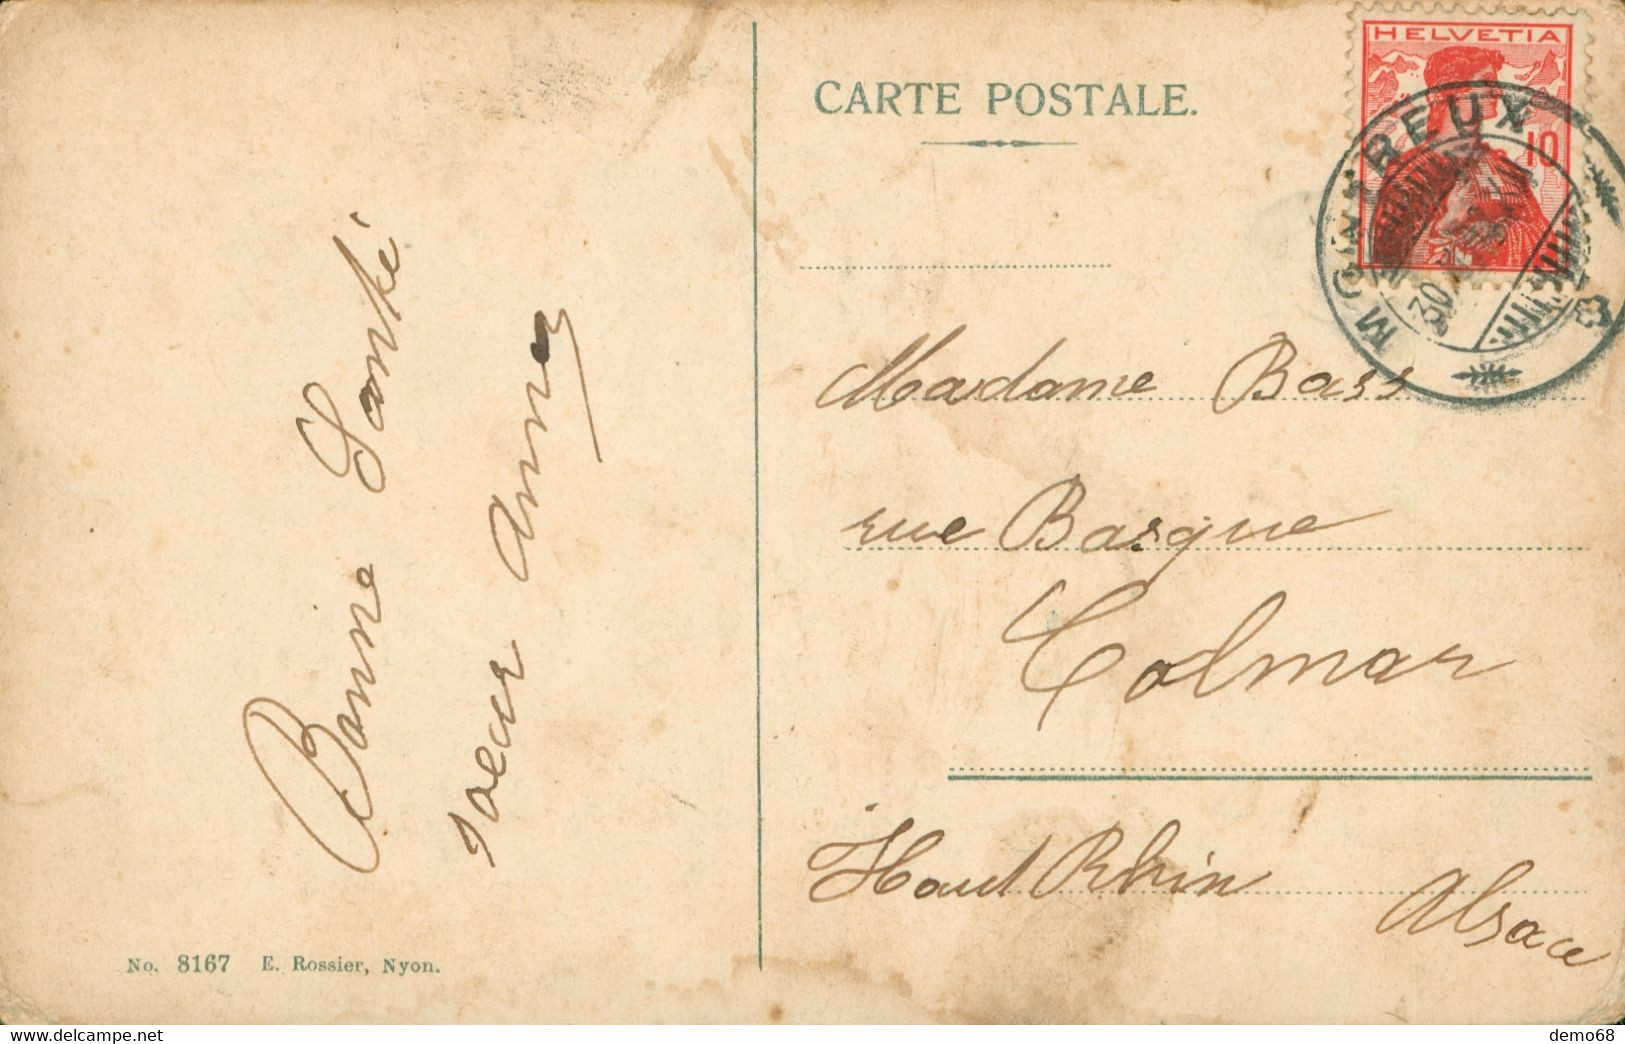 CARTE POSTALE.
HELVETIA
10
MONTREUX
Bonne Santé
soeur Anna
Madame Bass
rue Basque
Colmar
Haut Rhin
Alsace
No. 8167 E. Rossier, Nyon.
demo68